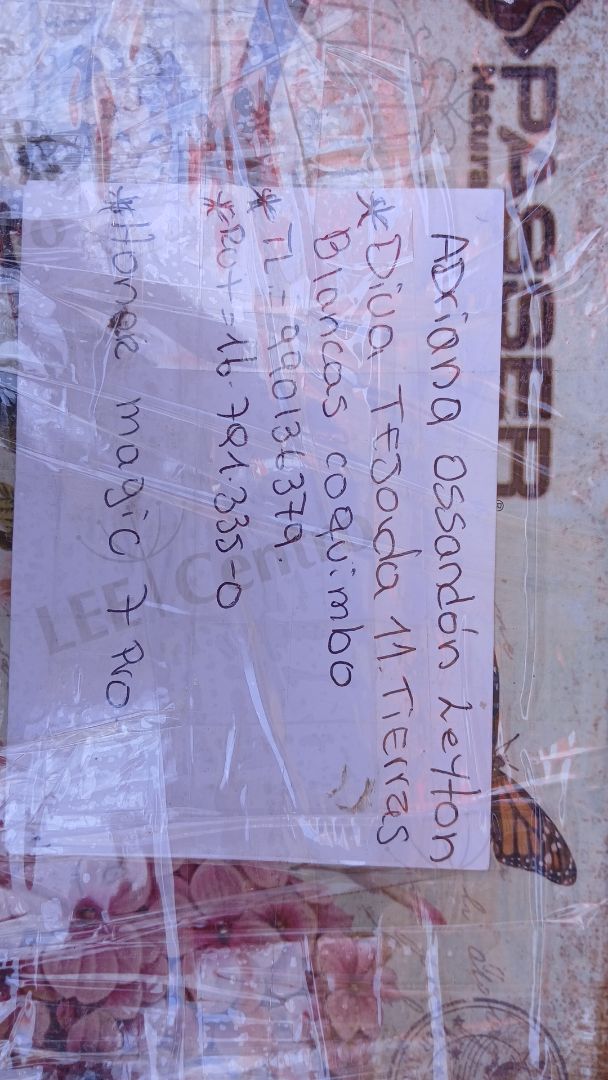 PASSER
Natura
ADriana ossandón Leyton
*Diva TEJada 11. TIErras
Blancas coquimbo
* TL = 990136379.
*Rut = 16.791.335-0
*Honor magic 7 PRO.
LEE Centro